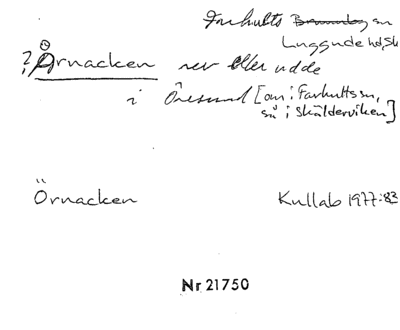 Farhults ~~Brunnby~~ sn
Luggude hd, Sk
? Örnacken rev eller udde
i Öresund [om i Farhults sn,
så i Skälderviken]
Örnacken Kullab 1977:83
Nr 21750